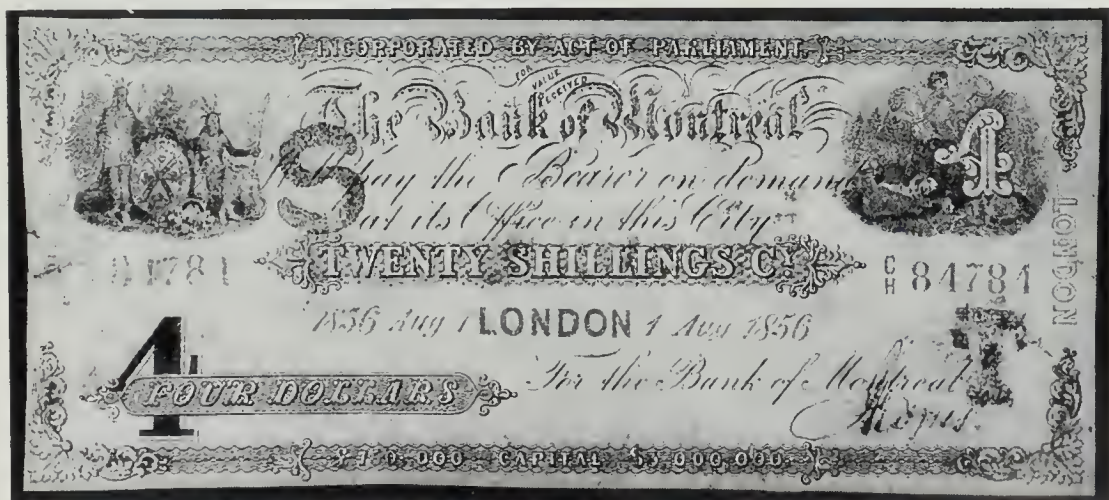 INCORPORATED BY ACT OF PARLIAMENT.
FOR VALUE RECEIVED
The Bank of Montreal
S
4
pay the Bearer on demand
at its Office in this City
LONDON
TWENTY SHILLINGS Cy
CH 84784
1856 Aug 1 LONDON 1 Aug 1856
4
FOUR DOLLARS
For the Bank of Montreal
CAPITAL $3,000,000.